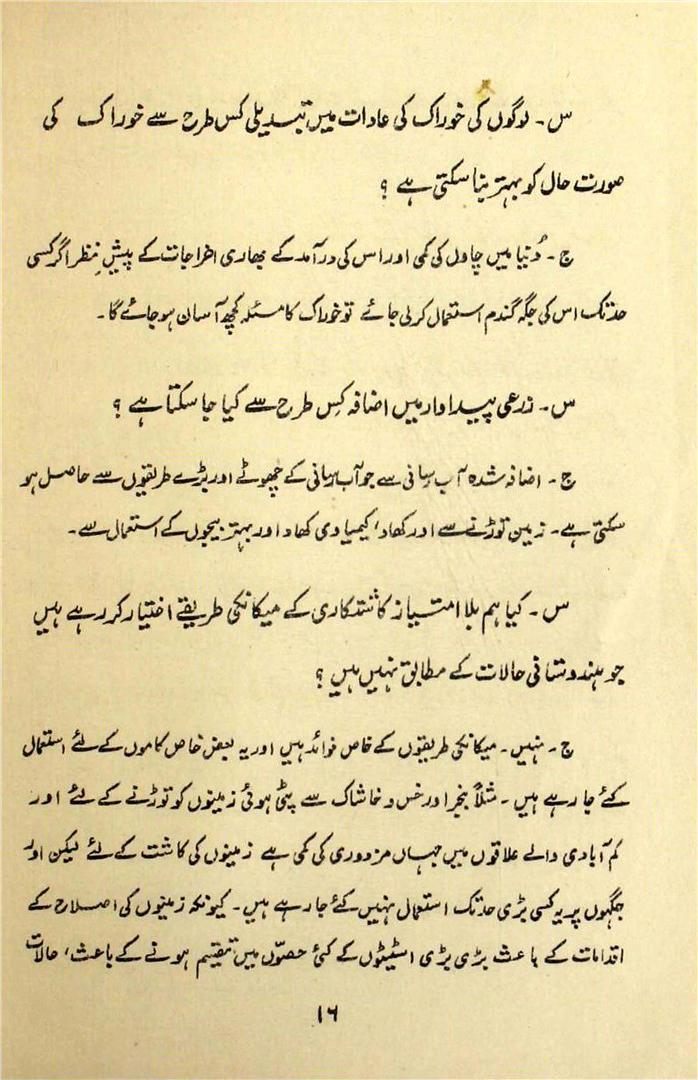 س۔ لوگوں کی خوراک کی عادات میں تبدیلی کس طرح سے خوراک کی
صورت حال کو بہتر بنا سکتی ہے ؟
ج۔ دُنیا میں چاول کی کمی اور اس کی درآمد کے بھاری اخراجات کے پیشِ نظر اگر کسی
حد تک اس کی جگہ گندم استعمال کر لی جائے تو خوراک کا مسئلہ کچھ آسان ہو جائے گا۔
س۔ زرعی پیداوار میں اضافہ کِس طرح سے کیا جا سکتا ہے ؟
ج۔ اضافہ شدہ آب رسانی سے جو آب رسانی کے چھوٹے اور بڑے طریقوں سے حاصل ہو
سکتی ہے۔ زمین توڑنے سے اور کھاد، کیمیاوی کھاد اور بہتر بیجوں کے استعمال سے۔
س۔ کیا ہم بلا امتیاز کاشتکاری کے میکانکی طریقے اختیار کر رہے ہیں
جو ہندوستانی حالات کے مطابق نہیں ہیں ؟
ج۔ نہیں۔ میکانکی طریقوں کے خاص فوائد ہیں اور یہ بعض خاص کاموں کے لئے استعمال
کئے جا رہے ہیں۔ مثلاً بنجر اور خس و خاشاک سے پٹی ہوئی زمینوں کو توڑنے کے لئے اور
کم آبادی والے علاقوں میں جہاں مزدوری کی کمی ہے زمینوں کی کاشت کے لئے لیکن اور
جگہوں پر یہ کسی بڑی حد تک استعمال نہیں کئے جا رہے ہیں۔ کیونکہ زمینوں کی اصلاح کے
اقدامات کے باعث بڑی بڑی اسٹیٹوں کے کئی حصّوں میں تقسیم ہونے کے باعث، حالات
۱۶